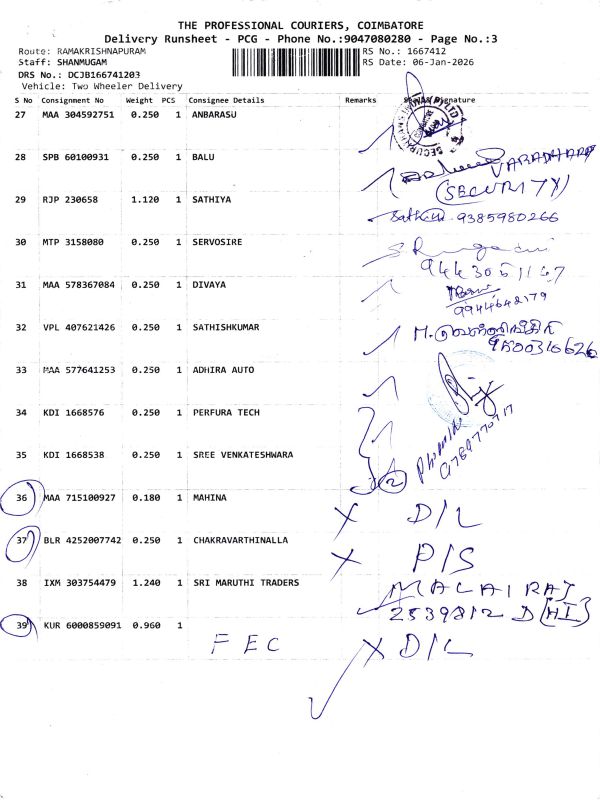 THE PROFESSIONAL COURIERS, COIMBATORE
Delivery Runsheet - PCG - Phone No.:9047080280 - Page No.:3
Route: RAMAKRISHNAPURAM
RS No.: 1667412
Staff: SHANMUGAM
RS Date: 06-Jan-2026
DRS No.: DCJB166741203
Vehicle: Two Wheeler Delivery
S No Consignment No Weight PCS Consignee Details Remarks Signature
27 MAA 304592751 0.250 1 ANBARASU
28 SPB 60100931 0.250 1 BALU
VARADHARA
(SECURITY)
29 RJP 230658 1.120 1 SATHIYA
9385980266
30 MTP 3158080 0.250 1 SERVOSIRE
31 MAA 578367084 0.250 1 DIVAYA
9944642179
32 VPL 407621426 0.250 1 SATHISHKUMAR
9500310626
33 MAA 577641253 0.250 1 ADHIRA AUTO
34 KDI 1668576 0.250 1 PERFURA TECH
35 KDI 1668538 0.250 1 SREE VENKATESHWARA
2
36 MAA 715100927 0.180 1 MAHINA
X D/L
37 BLR 4252007742 0.250 1 CHAKRAVARTHINALLA
X P/S
38 IXM 303754479 1.240 1 SRI MARUTHI TRADERS
MALAIRAJ
2539812 D (HI)
39 KUR 6000859091 0.960 1
FEC X D/L